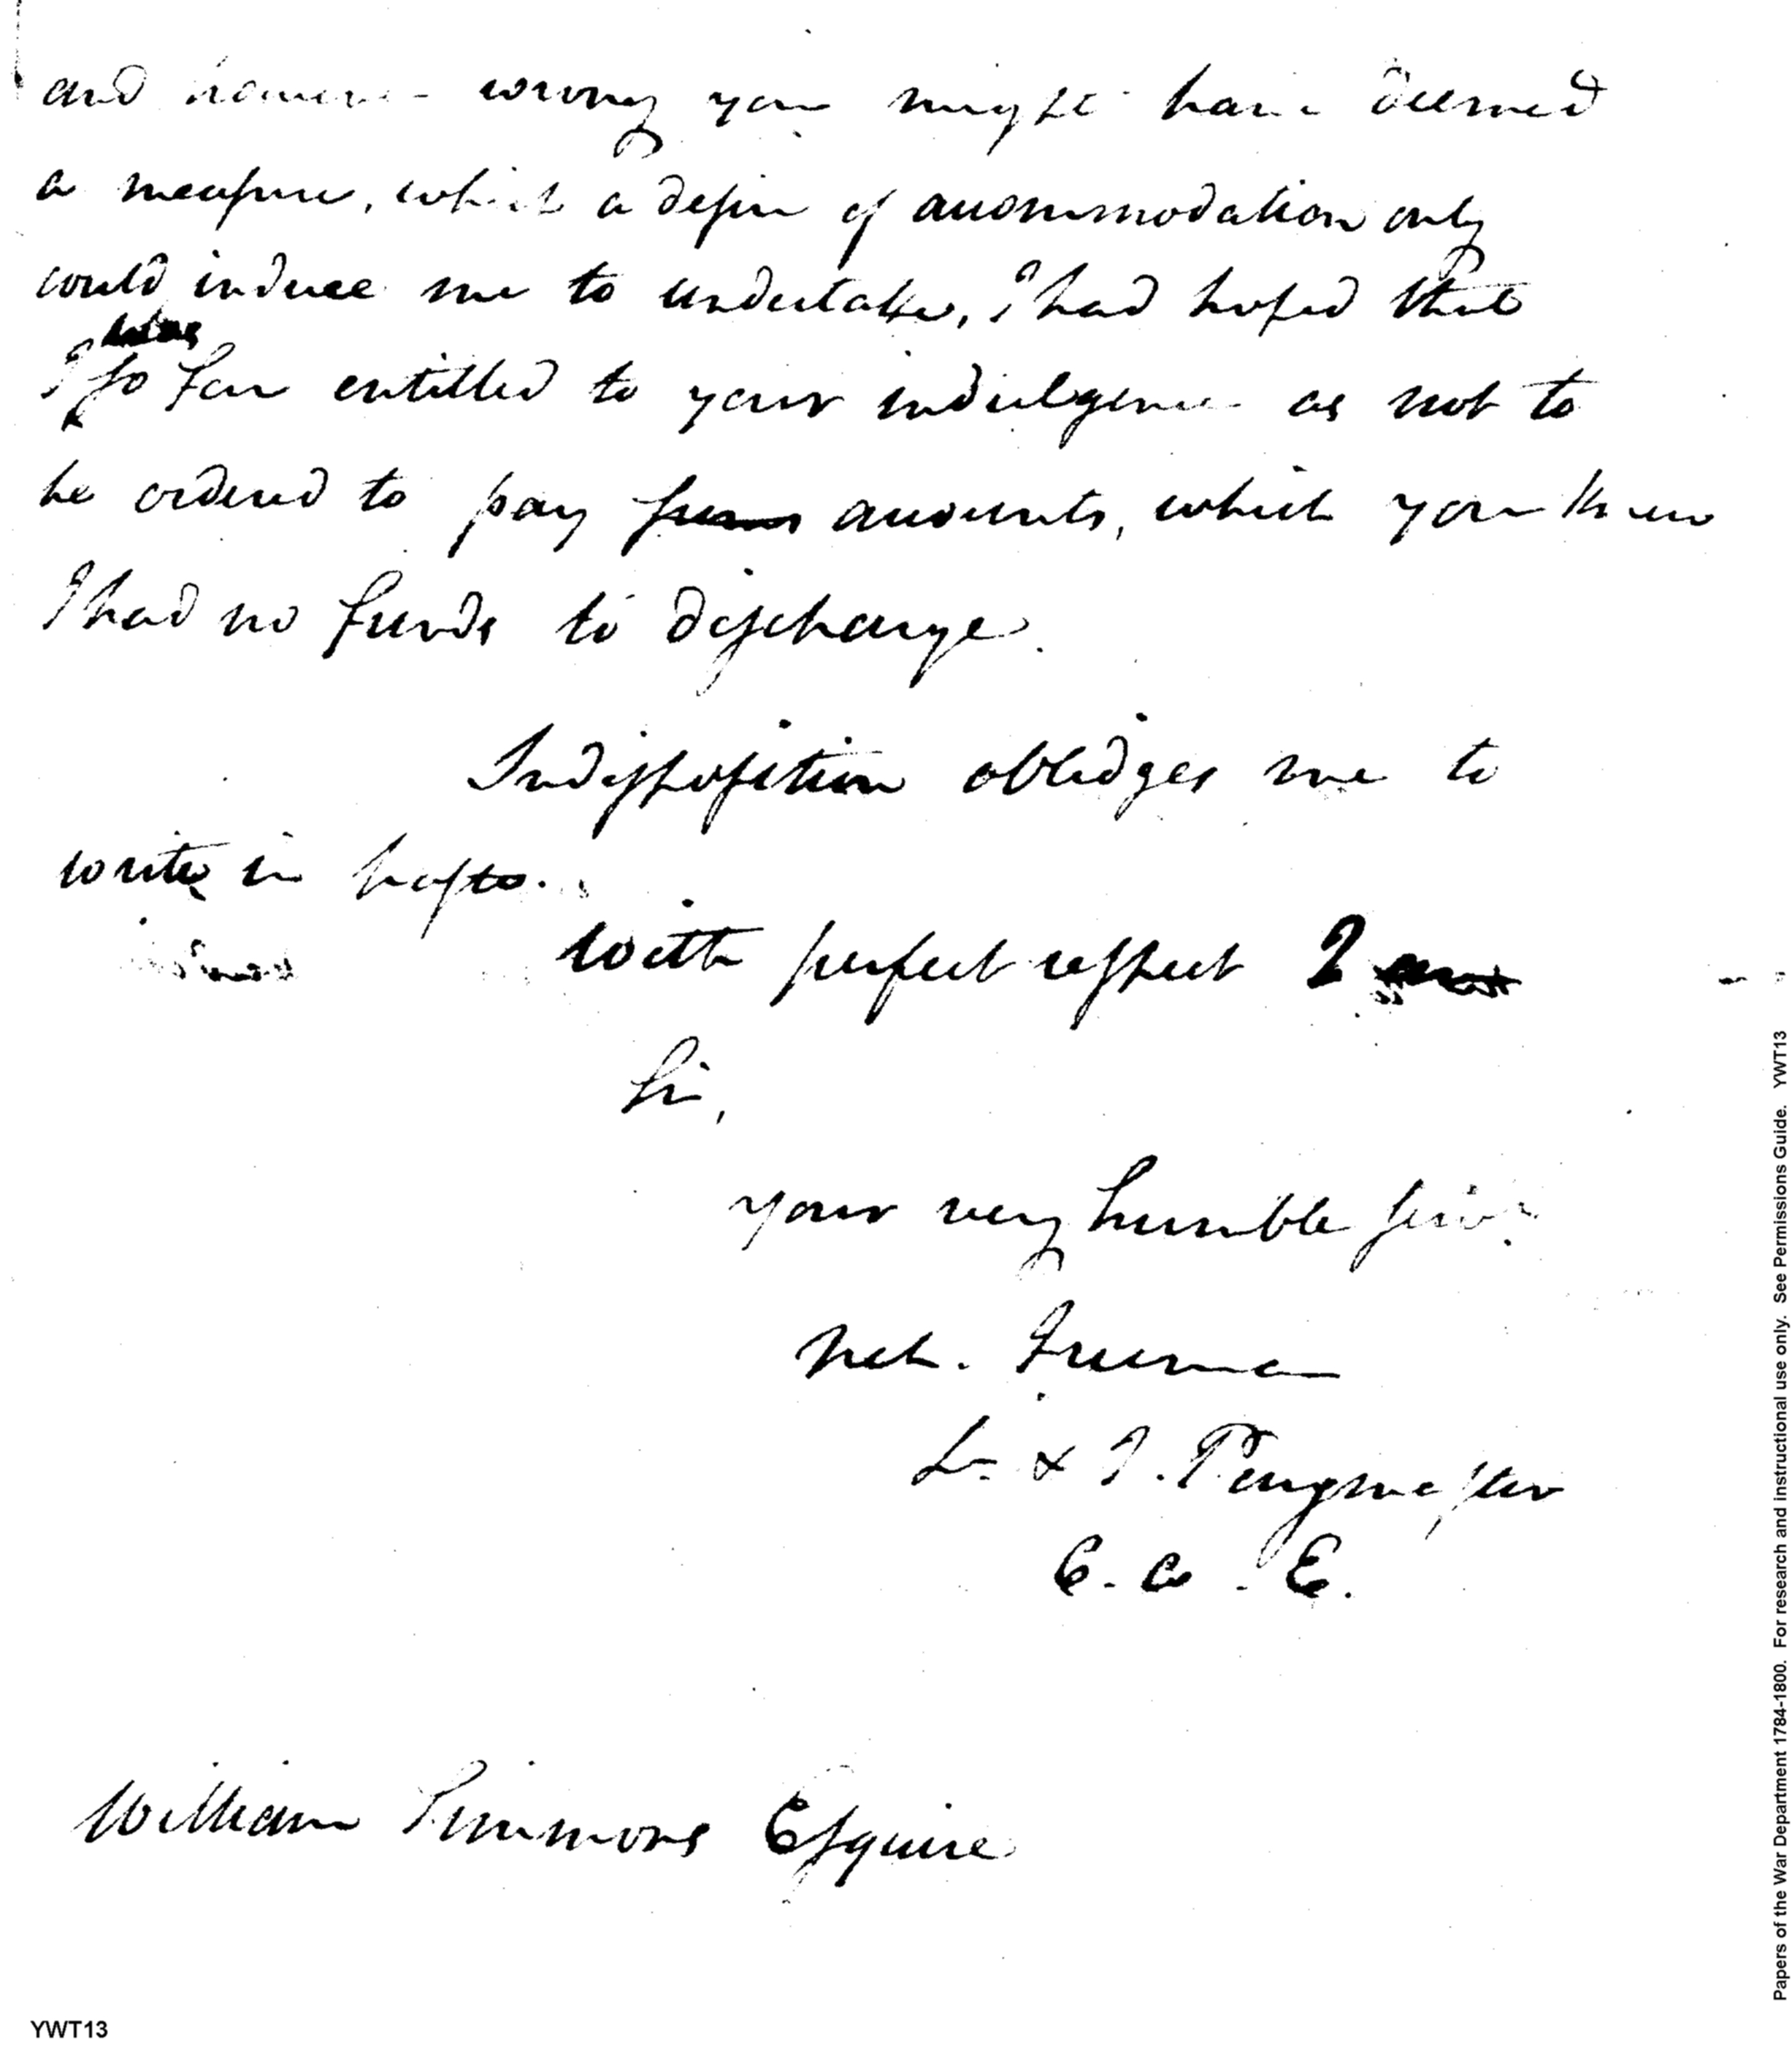 and however wrong you might have deemed
a measure, which a desire of accommodation only
could induce me to undertake, I had hoped that
was
I so far entitled to your indulgence as not to
be ordered to pay accounts, which you knew
I had no funds to discharge.
Indisposition obledges me to
write in haste.
With perfect respect I am
Sir,
your very humble Servt.
Net. Freeman
L. & T. Paymaster
C. A. E.
William Simmons Esquire
YWT13
Papers of the War Department 1784-1800. For research and instructional use only. See Permissions Guide. YWT13